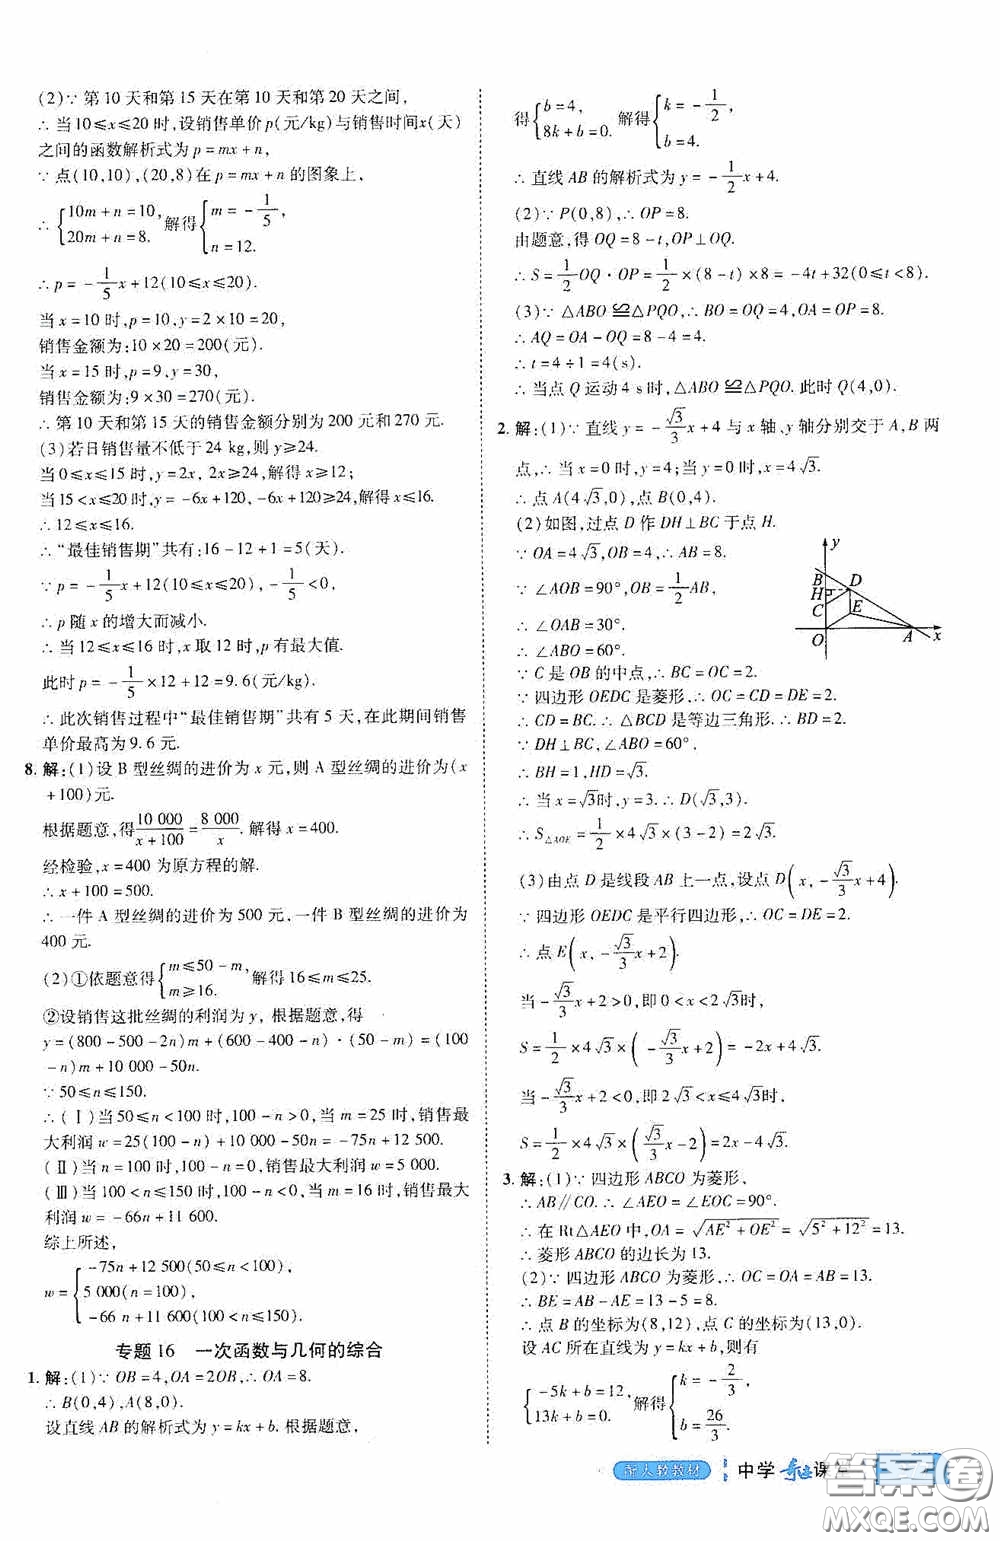 (2)∵ 第 10 天和第 15 天在第 10 天和第 20 天之间,
∴ 当 10≤x≤20 时,设销售单价 p(元/kg)与销售时间 x(天)
之间的函数解析式为 p=mx+n,
∵ 点(10,10),(20,8)在 p=mx+n 的图象上,
∴ {10m+n=10, 20m+n=8. 解得 {m=-1/5, n=12.
∴ p=-1/5x+12(10≤x≤20).
当 x=10 时,p=10,y=2×10=20,
销售金额为:10×20=200(元).
当 x=15 时,p=9,y=30,
销售金额为:9×30=270(元).
∴ 第 10 天和第 15 天的销售金额分别为 200 元和 270 元.
(3)若日销售量不低于 24 kg,则 y≥24.
当 0≤x≤15 时,y=2x, 2x≥24,解得 x≥12;
当 15<x≤20 时,y=-6x+120,-6x+120≥24,解得 x≤16.
∴ 12≤x≤16.
∴ “最佳销售期”共有:16-12+1=5(天).
∵ p=-1/5x+12(10≤x≤20),-1/5<0,
∴ p 随 x 的增大而减小.
∴ 当 12≤x≤16 时,x 取 12 时,p 有最大值.
此时 p=-1/5×12+12=9.6(元/kg).
∴ 此次销售过程中“最佳销售期”共有 5 天,在此期间销售
单价最高为 9.6 元.
8. 解:(1)设 B 型丝绸的进价为 x 元,则 A 型丝绸的进价为(x
+100)元.
根据题意,得 10 000/(x+100)=8 000/x. 解得 x=400.
经检验,x=400 为原方程的解.
∴ x+100=500.
∴ 一件 A 型丝绸的进价为 500 元,一件 B 型丝绸的进价为
400 元.
(2)①依题意得 {m≤50-m, m≥16. 解得 16≤m≤25.
②设销售这批丝绸的利润为 y, 根据题意,得
y=(800-500-2n)m+(600-400-n)·(50-m)=(100
-n)m+10 000-50n.
∵ 50≤n≤150.
∴ (Ⅰ)当 50≤n<100 时,100-n>0,当 m=25 时,销售最
大利润 w=25(100-n)+10 000-50n=-75n+12 500.
(Ⅱ)当 n=100 时,100-n=0,销售最大利润 w=5 000.
(Ⅲ)当 100<n≤150 时,100-n<0,当 m=16 时,销售最大
利润 w=-66n+11 600.
综上所述,
w={-75n+12 500(50≤n<100),
5 000(n=100),
-66 n+11 600(100<n≤150).
专题 16 一次函数与几何的综合
1. 解:(1)∵ OB=4,OA=2OB,∴ OA=8.
∴ B(0,4),A(8,0).
设直线 AB 的解析式为 y=kx+b. 根据题意,
得 {b=4, 8k+b=0. 解得 {k=-1/2, b=4.
∴ 直线 AB 的解析式为 y=-1/2x+4.
(2)∵ P(0,8),∴ OP=8.
由题意,得 OQ=8-t,OP⊥OQ.
∴ S=1/2OQ·OP=1/2×(8-t)×8=-4t+32(0≤t<8).
(3)∵ △ABO≌△PQO,∴ BO=OQ=4,OA=OP=8.
∴ AQ=OA-OQ=8-4=4.
∴ t=4÷1=4(s).
∴ 当点 Q 运动 4 s 时,△ABO≌△PQO. 此时 Q(4,0).
2. 解:(1)∵ 直线 y=-√3/3x+4 与 x 轴、y 轴分别交于 A,B 两
点,∴ 当 x=0 时,y=4;当 y=0 时,x=4√3.
∴ 点 A(4√3,0),点 B(0,4).
(2)如图,过点 D 作 DH⊥BC 于点 H.
∵ OA=4√3,OB=4,∴ AB=8.
∵ ∠AOB=90°,OB=1/2AB,
∴ ∠OAB=30°.
∴ ∠ABO=60°.
∵ C 是 OB 的中点,∴ BC=OC=2.
∵ 四边形 OEDC 是菱形,∴ OC=CD=DE=2.
∴ CD=BC. ∴ △BCD 是等边三角形. ∴ BD=2.
∵ DH⊥BC,∠ABO=60°.
∴ BH=1,HD=√3.
∴ 当 x=√3时,y=3. ∴ D(√3,3).
∴ S△AOE=1/2×4√3×(3-2)=2√3.
y
B
D
H
C
E
O
A
x
(3)由点 D 是线段 AB 上一点,设点 D(x,-√3/3x+4).
∵ 四边形 OEDC 是平行四边形,∴ OC=DE=2.
∴ 点 E(x,-√3/3x+2).
当-√3/3x+2>0,即 0<x<2√3时,
S=1/2×4√3×(-√3/3x+2)=-2x+4√3.
当-√3/3x+2<0,即 2√3<x≤4√3时,
S=1/2×4√3×(√3/3x-2)=2x-4√3.
3. 解:(1)∵ 四边形 ABCO 为菱形,
∴ AB∥CO. ∴ ∠AEO=∠EOC=90°.
∴ 在 Rt△AEO 中,OA=√(AE²+OE²)=√(5²+12²)=13.
∴ 菱形 ABCO 的边长为 13.
(2)∵ 四边形 ABCO 为菱形,∴ OC=OA=AB=13.
∴ BE=AB-AE=13-5=8.
∴ 点 B 的坐标为(8,12),点 C 的坐标为(13,0).
设 AC 所在直线为 y=kx+b,
{-5k+b=12, 13k+b=0. 解得 {k=-2/3, b=26/3.
配人教教材
中学奇迹课堂
答案卷
MXQE.COM